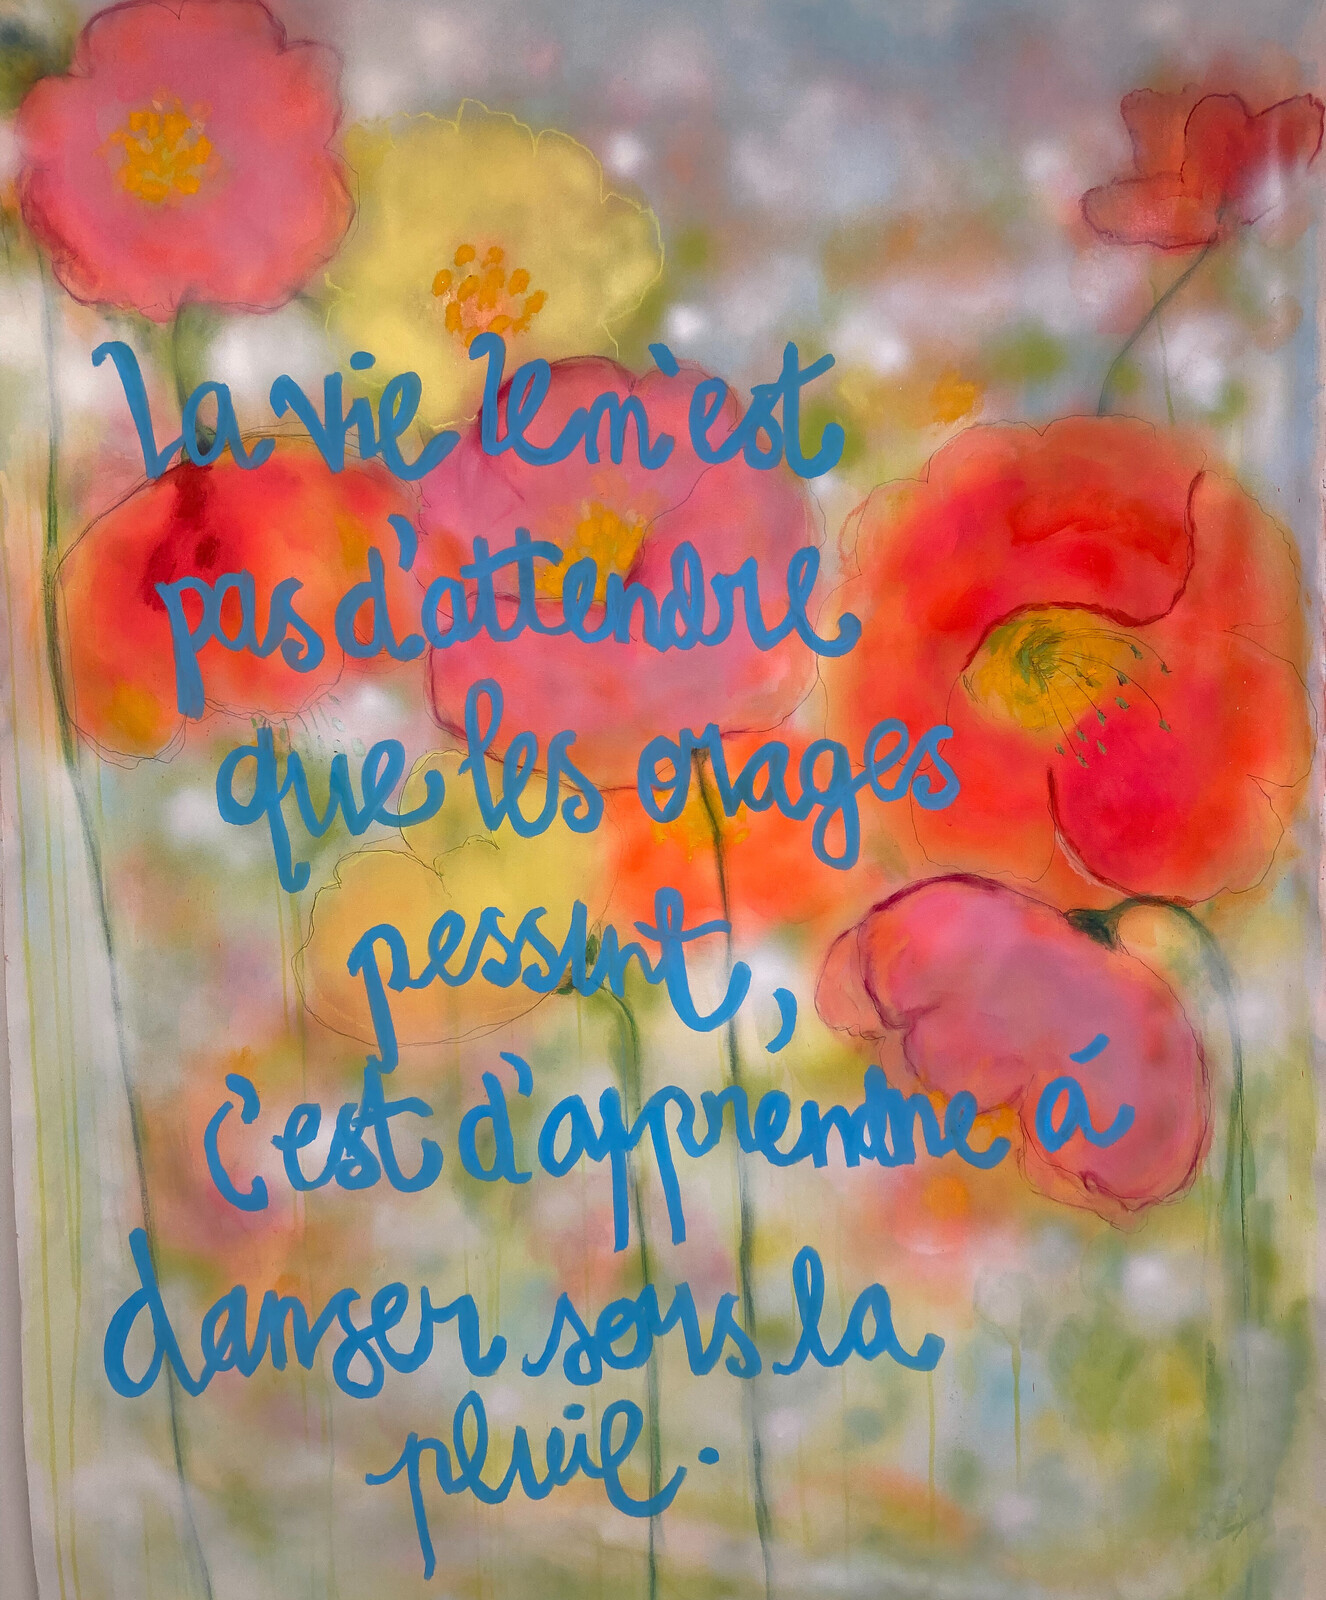 La vie lem'est
pas d'attendre
que les orages
pessint,
c'est d'apprendre á
danser sous la
pluie.